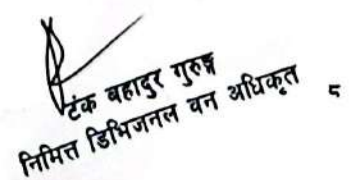 टंक बहादुर गुरुङ्ग
निमित्त डिभिजनल वन अधिकृत
५